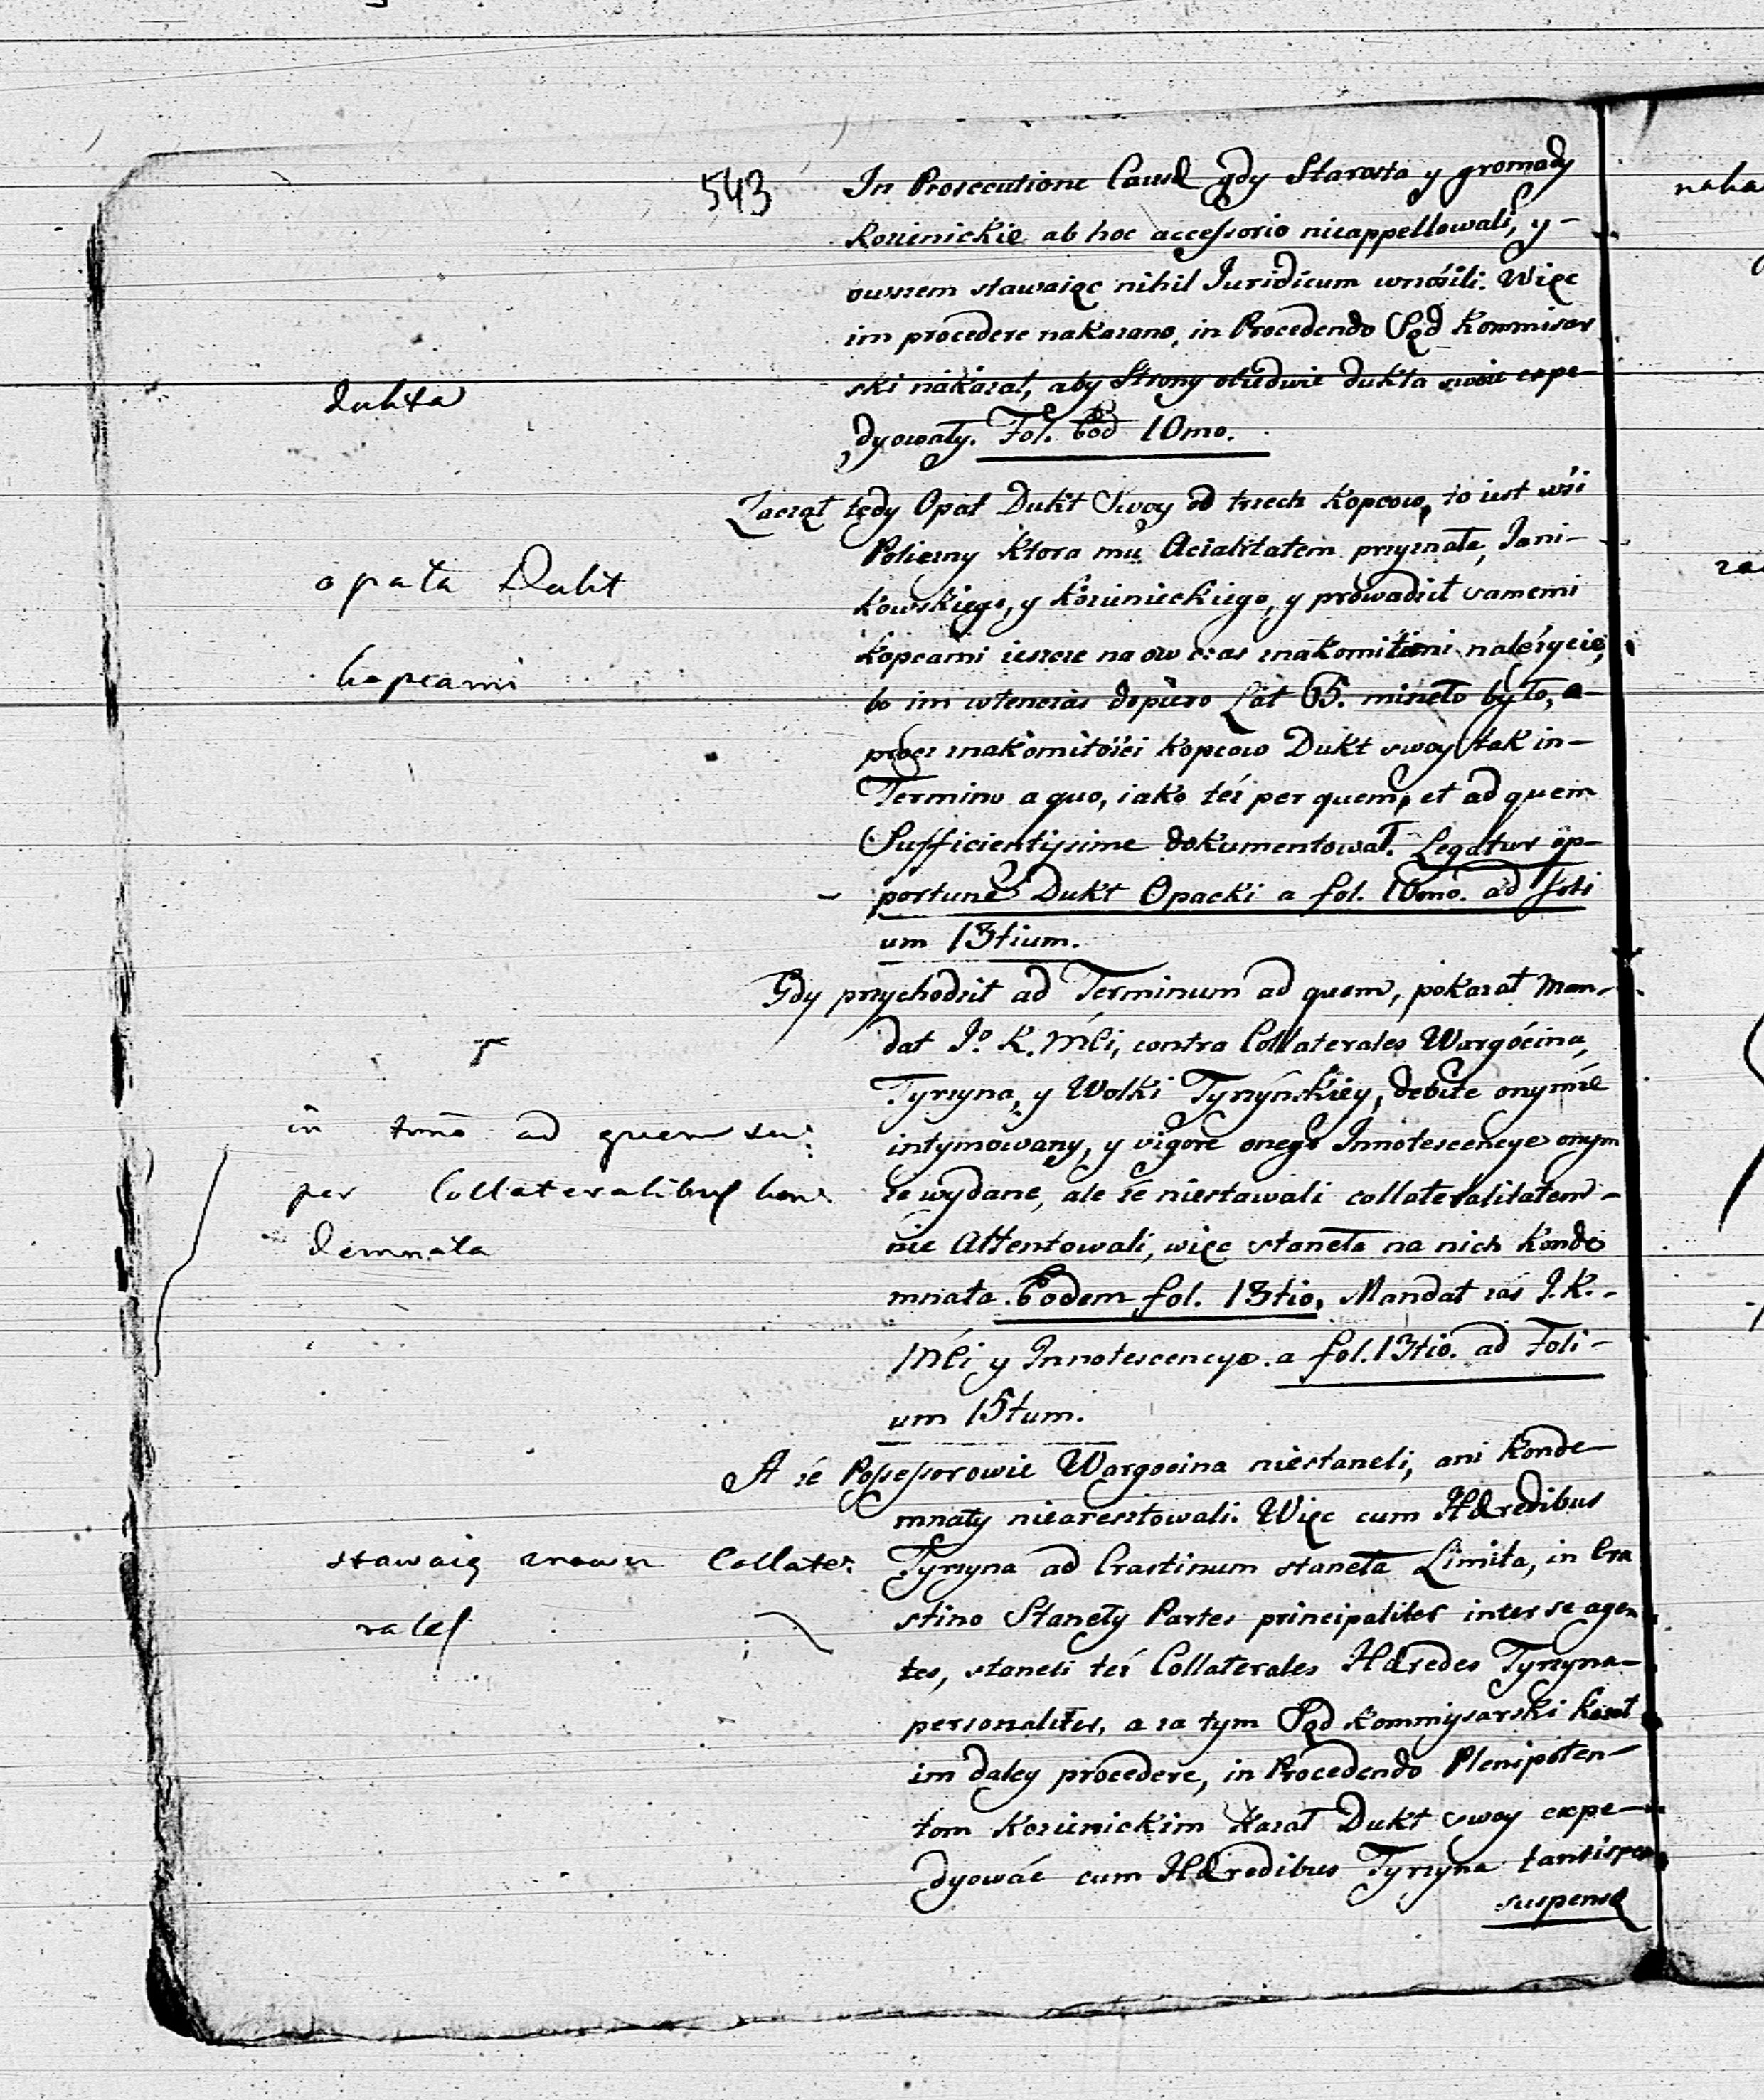 543
In Prosecutione Causæ gdy Starosta y gromady
Kozienickie ab hoc accessorio nieappellowali, y -
owszem stawaiąc nihil Juridicum wnosili. Więc
im procedere nakazano, in Procedendo Sąd Kommisar
ski nakazał, aby Strony obiedwie dukta swoie expe-
dyowały. Fol. eod 10mo.
dukta
Zaczął tedy Opat Dukt Swoy od trzech Kopcow, to iest wsi
Policzny ktora mu Acialitatem przyznała, Jani-
kowskiego, y Kozienieckiego, y prowadził samemi
Kopcami ieszcze na ow czas znakomitemi należycie,
bo im wtenczas dopiero Lat 65. mineło było, a-
procz znakomitości kopcow Dukt swoy tak in-
Termino a quo, iako też per quem, et ad quem
Sufficientissime dokumentował. Legatur op-
portune Dukt Opacki a fol. 10mo. ad foli
um 13tium.
opata Dukt
kopcami
Gdy przychodził ad Terminum ad quem, pokazał Man-
dat Jo. K. Mći, contra Collaterales Wargócina,
Tyrzyna, y Wolki Tyrzyńskiey, debite onymże
intymowany, y vigore onego Innotescencye onym
że wydane, ale że niestawali collateralitatem -
nie Attentowali, więc staneła na nich Konde
mnata. Eodem fol. 13tio, Mandat zaś J.K. -
Mći y Innotescencye. a fol. 13tio. ad Foli-
um 15tum.
in tmno ad quem su:
per Collateralibus kon:
demnata
A że Possessorowie Wargocina niestaneli, ani Konde-
mnaty niearesztowali. Więc cum Hæredibus
Tyrzyna ad Crastinum staneła Limita, in Cra
stino Staneły Partes principaliter inter se agen
tes, staneli też Collaterales Hæredes Tyrzyna-
personaliter, a za tym Sąd Kommysarski kazał
im daley procedere, in Procedendo Plenipoten-
tom Kozienickim Kazał Dukt swoy expe-
dyować cum Hæredibus Tyrzyna tantisper
suspensæ
stawaią znowu Collate:
rales